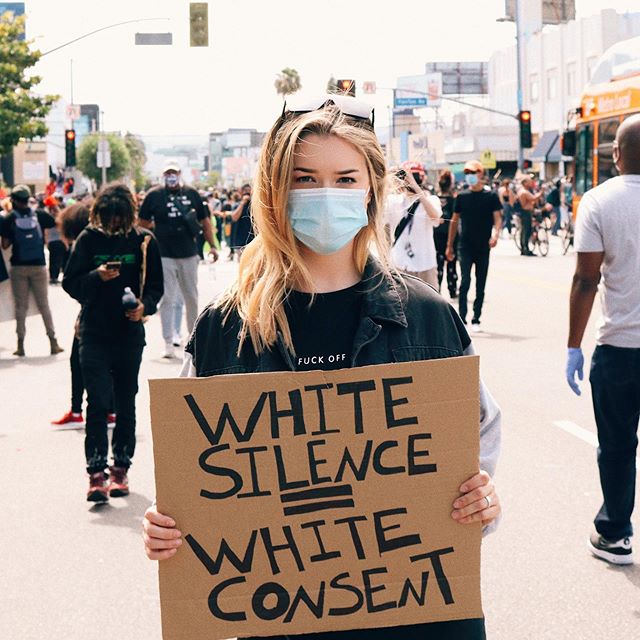 FUCK OFF
WHITE
SILENCE
=
WHITE
CONSENT